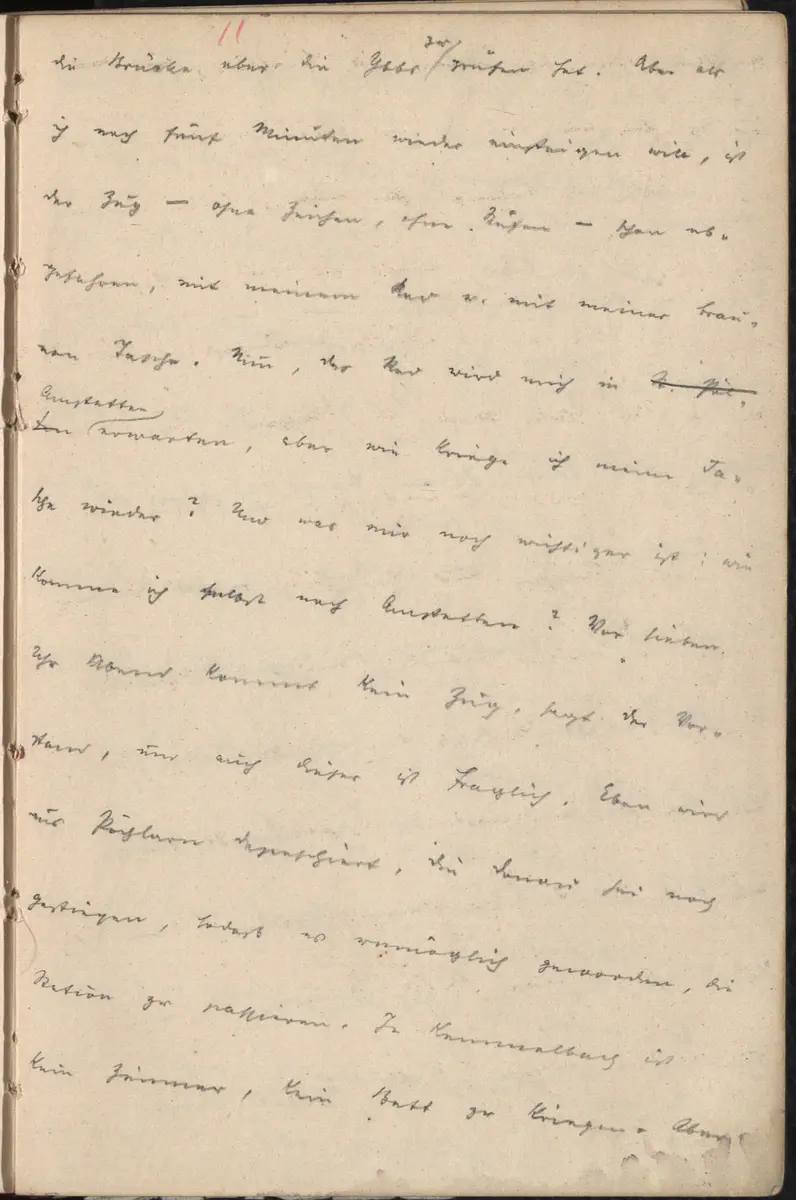 11
die Brücke über die Ybbs zu prüfen hat. Aber als
ich nach fünf Minuten wieder einsteigen will, ist
der Zug — ohne Zeichen, ohne Rufen — schon ab-
gefahren, mit meinem Rad u. mit meiner brau-
nen Tasche. Nun, das Rad wird mich in St. Pöl-
ten Amstetten erwarten, aber wie kriege ich meine Ta-
sche wieder? Und was mir noch wichtiger ist: wie
komme ich selbst nach Amstetten? Vor sieben
Uhr Abend kommt kein Zug, sagt der Vor-
stand, und auch dieser ist fraglich. Eben wird
aus Pöchlarn depeschiert, die Donau sei noch
gestiegen, sodaß es unmöglich geworden, die
Station zu passieren. In Kemmelbach ist
kein Zimmer, kein Bett zu kriegen. Aber